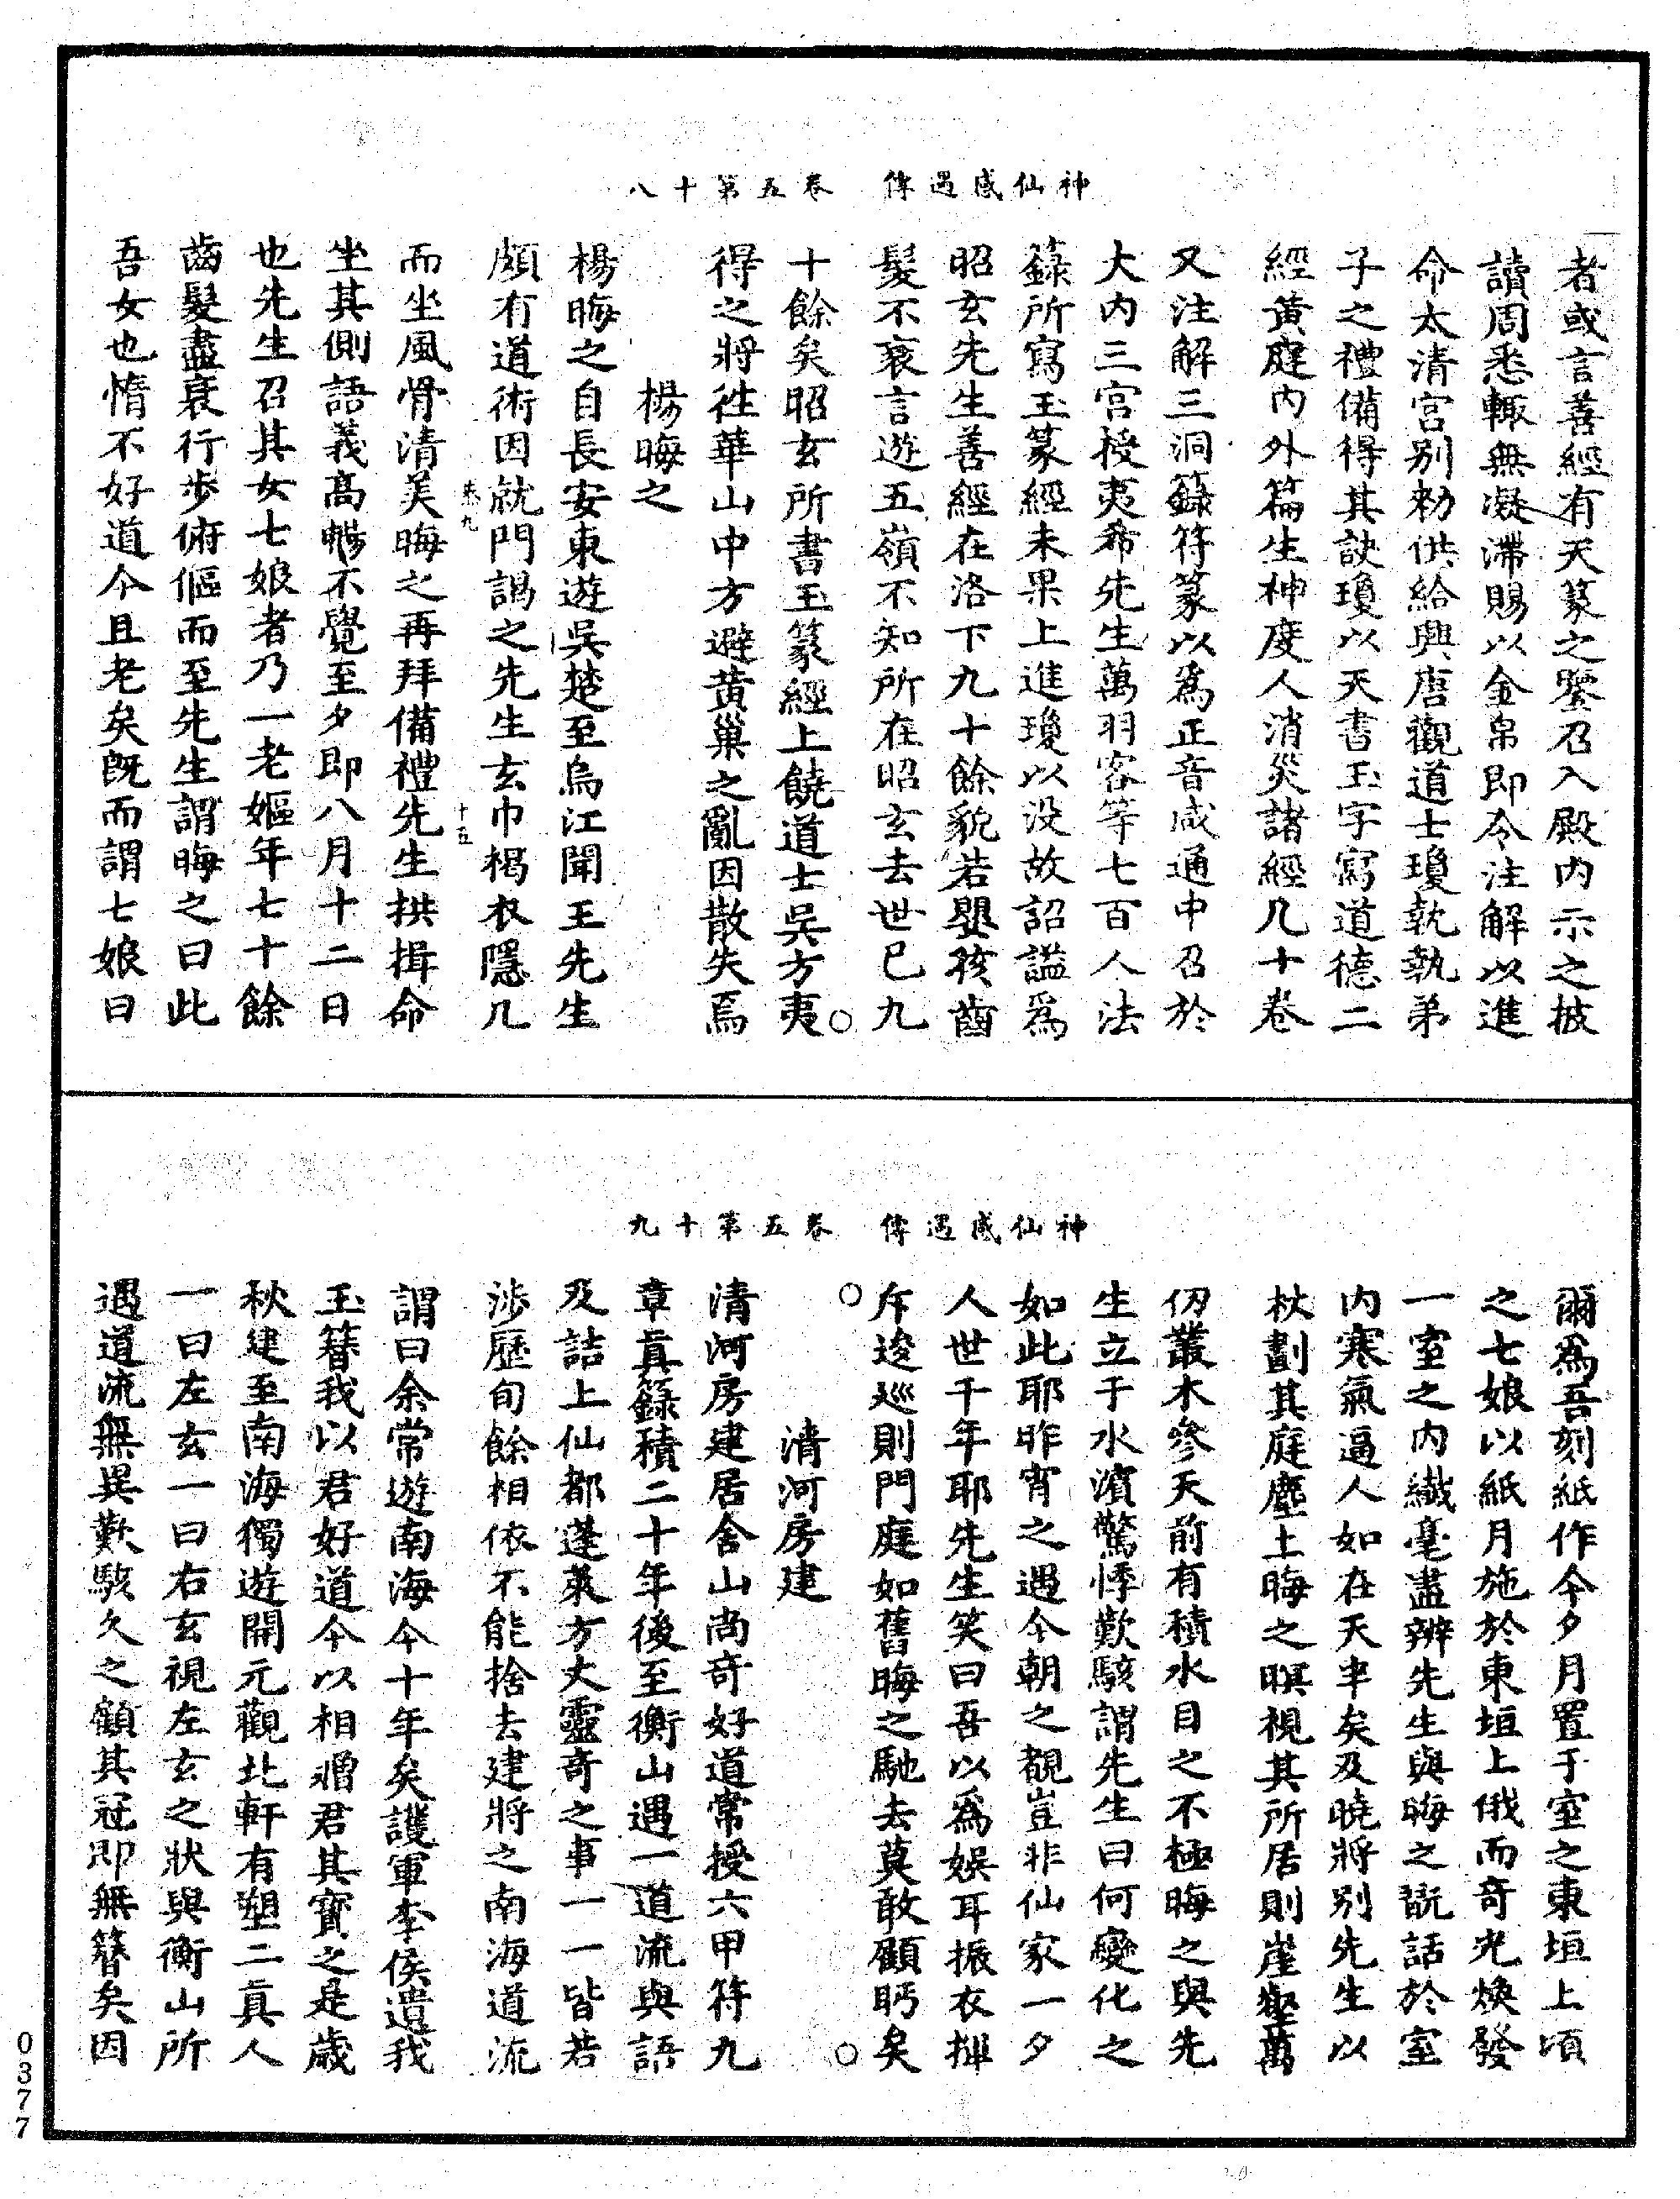 神仙感遇傳　卷五第十八
者或言善經有天篆之鑒召入殿内示之披
讀周悉輙無凝滯賜以金帛即令注解以進
命太清宮别勑供給興唐觀道士瓊執執弟
子之禮備得其訣瓊以天書玉字寫道德二
經黄庭内外篇生神度人消災諸經几十卷
又注解三洞籙符篆以爲正音咸通中召於
大内三宮授夷希先生萬羽客等七百人法
籙所寫玉篆經未果上進瓊以没故詔謚爲
昭玄先生善經在洛下九十餘貌若嬰孩齒
髮不衰言遊五嶺不知所在昭玄去世已九
十餘矣昭玄所書玉篆經上饒道士吳方夷
得之將徃華山中方避黄巢之亂因散失焉
楊晦之
楊晦之自長安東遊吳楚至烏江聞王先生
頗有道術因就門謁之先生玄巾褐衣隱几
恭九
十五
而坐風骨清美晦之再拜備禮先生拱揖命
坐其側語義髙暢不覺至夕即八月十二日
也先生召其女七娘者乃一老嫗年七十餘
齒髮盡衰行步俯傴而至先生謂晦之曰此
吾女也惰不好道今且老矣既而謂七娘曰
神仙感遇傳　卷五第十九
爾爲吾刻紙作今夕月置于室之東垣上頃
之七娘以紙月施於東垣上俄而奇光煥發
一室之内纖毫盡辨先生與晦之翫話於室
内寒氣逼人如在天半矣及曉將别先生以
杖劃其庭塵土晦之暝視其所居則崖壑萬
仞叢木參天前有積水目之不極晦之與先
生立于水濱驚悸歎駭謂先生曰何變化之
如此耶昨宵之遇今朝之覩豈非仙家一夕
人世千年耶先生笑曰吾以爲娱耳振衣揮
斥逡巡則門庭如舊晦之馳去莫敢顧眄矣
清河房建
清河房建居舍山尚奇好道常授六甲符九
章真籙積二十年後至衡山遇一道流與語
及詰上仙都蓬萊方丈靈奇之事一一皆若
涉歷旬餘相依不能捨去建將之南海道流
謂曰余常遊南海今十年矣護軍李侯遺我
玉簪我以君好道今以相贈君其寳之是歲
秋建至南海獨遊開元觀北軒有塑二真人
一曰左玄一曰右玄視左玄之狀與衡山所
遇道流無異歎駭久之顧其冠即無簪矣因
0377